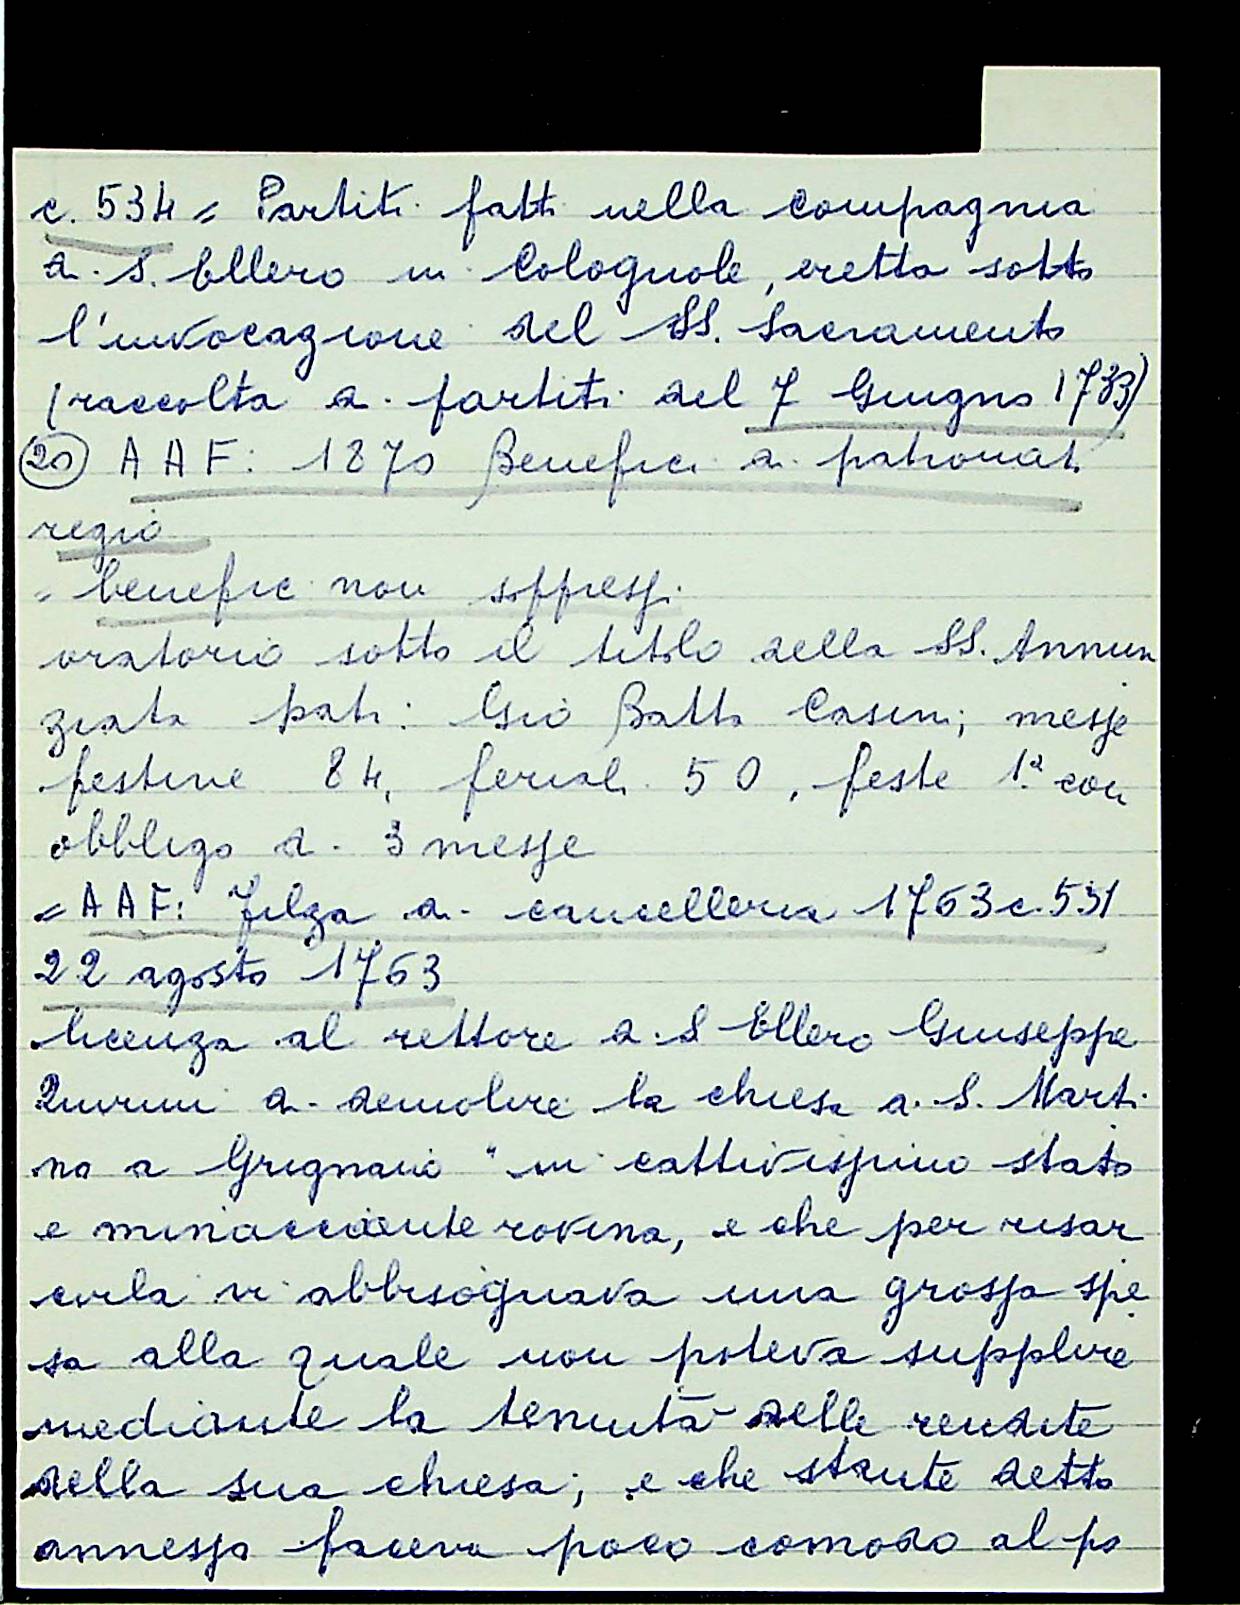 c. 534 = Partiti fatti nella compagnia
di S. Ellero in Colognole, eretta sotto
l'invocazione del SS. Sacramento
(raccolta di partiti del 7 Giugno 1733)
20 AAF: 1870 Benefici di patronati
regio
= benefici non soppressi
oratorio sotto il titolo della SS. Annun
ziata patr: Gio Batta Casini; messe
festive 84, feriali 50, feste 1ª con
obbligo di 3 messe
= AAF: Filza di cancelleria 1763 c. 531
22 agosto 1763
licenza al rettore di S Ellero Giuseppe
di demolire la chiesa di S. Marti
no a Grignano "in cattivissimo stato
e minacciante rovina, e che per risar
cirla vi abbisognava una grossa spe
sa alla quale non poteva supplire
mediante la tenuità delle rendite
della sua chiesa; e che stante detto
annesso faceva poco comodo al po